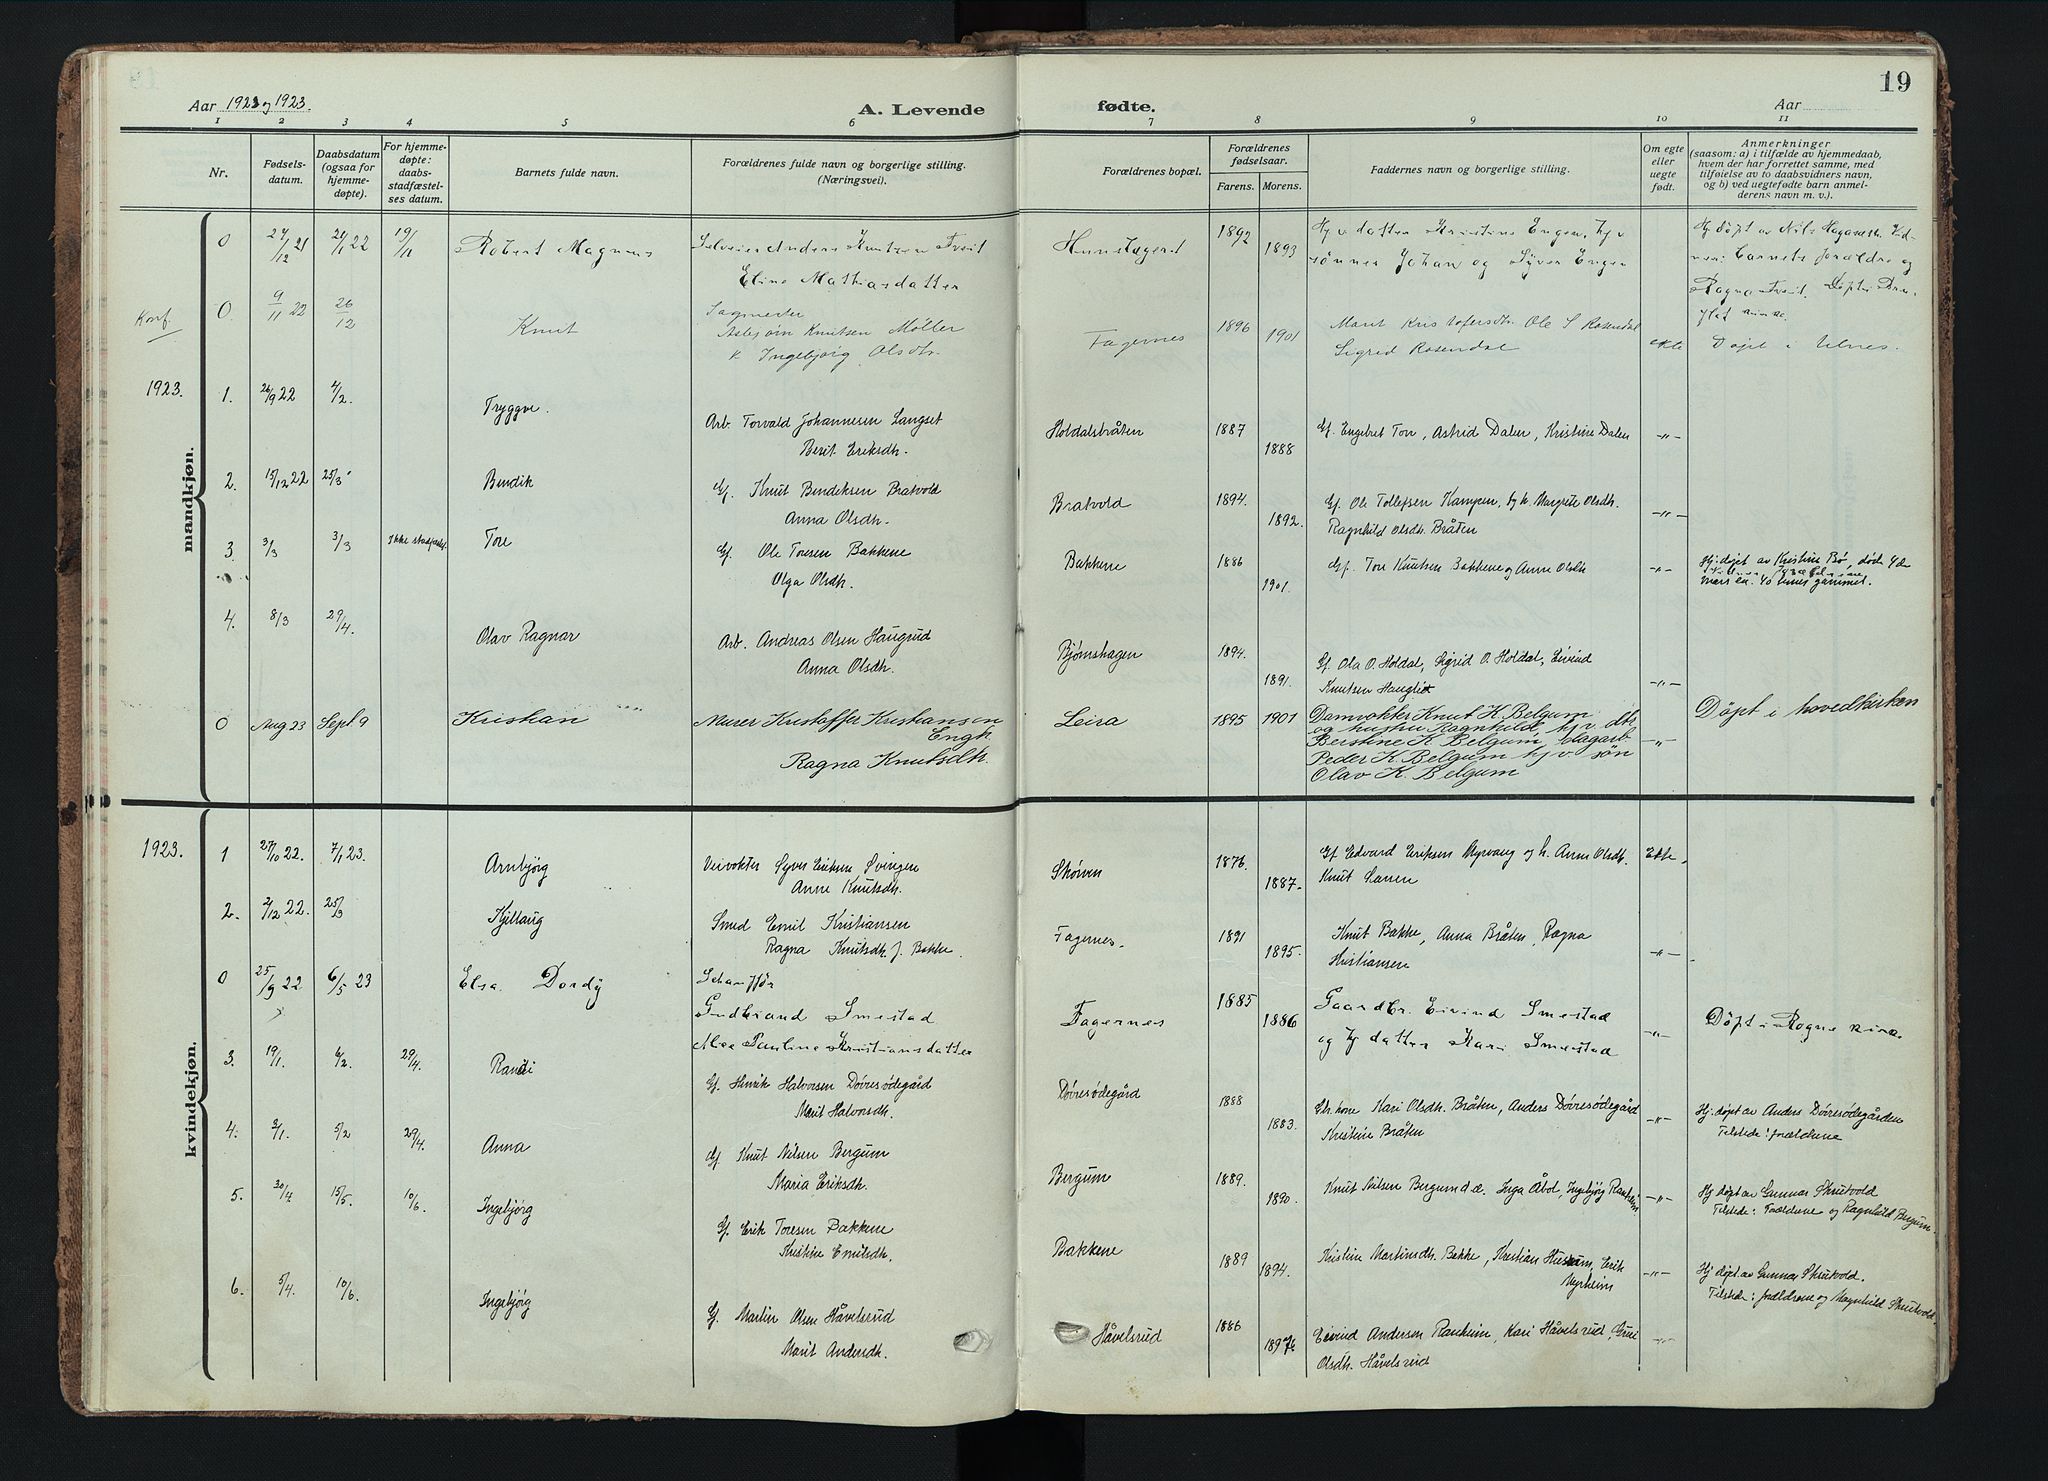 Aar 1922 og 1923.
A. Levende
fødte.
Aar
19
1 2 3 4 5 6 7 8 9 10 11
Nr.
Fødsels-
datum.
Daabsdatum
(ogsaa for
hjemme-
døpte).
For hjemme-
døpte:
daabs-
stadfæstel-
ses datum.
Barnets fulde navn.
Forældrenes fulde navn og borgerlige stilling.
(Næringsvei).
Forældrenes bopæl.
Forældrenes
fødselsaar.
Farens. Morens.
Faddernes navn og borgerlige stilling.
Om egte
eller
uegte
født.
Anmerkninger
(saasom: a) i tilfælde av hjemmedaab,
hvem der har forrettet samme, med
tilføielse av to daabsvidners navn,
og b) ved uegtefødte barn anmel-
derens navn m. v.).
mandkjøn.
0 Robert Magnus
Anders Knutsen Tveit
Eline Mathiasdatter
1892 1893
datter Kristine Engen,
sønner Johan og Syver Engen
Hj døpt av Nils
Barnets forældre og
Ragna Tveit. Døpt i
Konf. 0. 9/11 22 26/12 Knut
Sagmester
Asbjørn Knutsen Möller
k Ingebjørg Olsdtr.
Fagernes 1896 1901
Marit Kristofersdtr. Ole S Rosendal
Sigrid Rosendal
ekte Døpt i Ulnes.
1923. 1. 26/9 22 4/2. Tryggve.
Arb. Torvald Johannesen Langset
Berit Eriksdtr.
Holdalsbråten 1887 1888
Gf. Engebret Ton, Astrid Dalen, Kristine Dalen -"-
2. 15/12 22 25/3 Bendik
Gf. Knut Bendiksen Bratvold
Anna Olsdtr.
Bratvold 1894. 1892.
Gf. Ole Tollefsen Kampen, og h. Margrete Olsdtr.
Ragnhild Olsdtr. Bråten -"-
3. 3/3 3/3 Ikke stadfæstet Tore
Gf. Ole Toresen Bakkene
Olga Olsdtr.
Bakkene 1886 1901.
Gf. Tore Knutsen Bakkene og Anne Olsdtr -"-
Hj. døpt av Kristine Bø, døde 4de
mars ca. 40 timer gammel.
4. 8/3 29/4. Olav Ragnar
Arb. Andreas Olsen Haugrud
Anna Olsdtr.
Bjørnshagen 1894. 1891.
Gf. Ola O. Holdal, Sigrid O. Holdal, Eivind
Knutsen Hauglid -"-
0 Aug 23 Sept 9 Kristian
Murer Kristoffer Kristiansen
Engh
Ragna Knutsdtr.
Leira 1895 1901
Damvokter Knut K. Belgum
og hustru Ragnhild, hjv. dtr
Berthine K. Belgum, dagarb
Peder K. Belgum hjv søn
Olav K. Belgum
-"- Døpt i hovedkirken
kvindekjøn.
1923. 1 27/10 22. 7/1 23. Arnbjörg
Veivokter Syver Eriksen Svingen
Anne Knutsdtr.
Skörven 1876. 1887.
Gf Edvard Eriksen Myrvang og h. Anne Olsdtr.
Knut Larsen
Ekte.
2. 2/12 22. 25/3 Kjellaug
Smed Emil Kristiansen
Ragna Knutsdtr f. Bakke.
Fagernes. 1891 1895.
Knut Bakke, Anna Bråten, Ragna
Kristiansen -"-
0 25/9 22 6/5 23 Elsa Dordy
Schauffør
Gudbrand Smestad
Alea Pauline Kristiansdatter
Fagernes 1885 1886
Gaardbr. Eivind Smestad
og Hj datter Kari Smestad
-"- Døpt i Rogne kirke
3. 19/1. 6/2. 29/4. Randi
Gf. Henrik Halvorsen Dövresödegård
Marit Halvorsdtr.
Dövresödegård 1888 1883.
Gbr. kone Kari Olsdtr. Bråten, Anders Dövresödegård
Kristine Bråten -"-
Hj. døpt av Anders Dövresödegården
Tilstede: forældrene
4. 3/1. 5/2 29/4. Anna
Gf. Knut Nilsen Bergum
Maria Eriksdtr.
Bergum 1889. 1890.
Knut Nilsen Bergum d.æ. Inga Åbol, Ingebjörg Ranheim -"-
Hj døpt av Gunnar Skrutvold
Tilstede: Forældrene og Ragnhild Bergum.
5. 30/4. 15/5. 10/6. Ingebjörg
Gf. Erik Toresen Bakkene
Kristine Emilsdtr.
Bakkene 1889 1894.
Kristine Martinsdtr. Bakke, Kristian Husum, Erik
Myrheim -"-
Hj døpt av Gunnar Skrutvold.
Tilstede: forældrene og Magnhild Skrutvold.
6. 5/4. 10/6. Ingebjörg
Gf. Martin Olsen Håvelsrud
Marit Andersdtr.
Håvelsrud 1886
Eivind Andersen Ranheim, Kari Håvelsrud, Guri
Olsdtr. Håvelsrud -"-